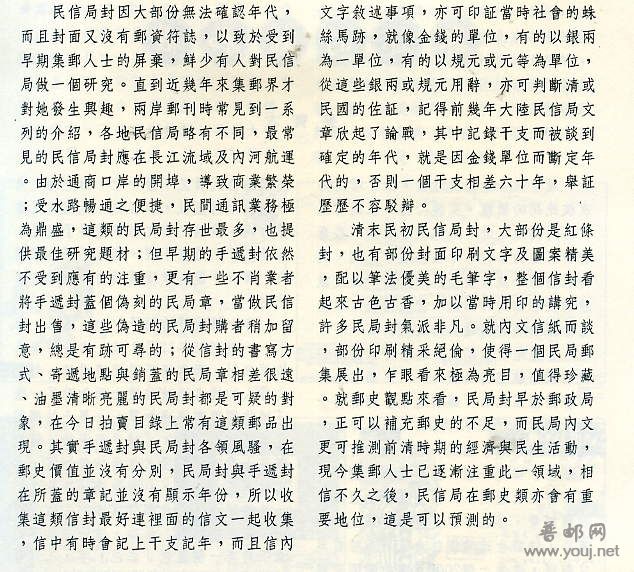 民信局封因大部份無法確認年代，
而且封面又沒有郵資符誌，以致於受到
早期集郵人士的屏棄，鮮少有人對民信
局做一個研究。直到近幾年來集郵界才
對她發生興趣，兩岸郵刊時常見到一系
列的介紹，各地民信局略有不同，最常
見的民信局封應在長江流域及內河航運
。由於通商口岸的開埠，導致商業繁榮
；受水路暢通之便捷，民間通訊業務極
為鼎盛，這類的民局封存世最多，也提
供最佳研究題材；但早期的手遞封依然
不受到應有的注重，更有一些不肖業者
將手遞封蓋個偽刻的民局章，當做民信
封出售，這些偽造的民局封購者稍加留
意，總是有跡可尋的；從信封的書寫方
式、寄遞地點與銷蓋的民局章相差很遠
、油墨清晰亮麗的民局封都是可疑的對
象，在今日拍賣目錄上常有這類郵品出
現。其實手遞封與民局封各領風騷，在
郵史價值並沒有分別，民局封與手遞封
在所蓋的章記並沒有顯示年份，所以收
集這類信封最好連裡面的信文一起收集
，信中有時會記上干支記年，而且信內
文字敘述事項，亦可印証當時社會的蛛
絲馬跡，就像金錢的單位，有的以銀兩
為一單位，有的以規元或元等為單位，
從這些銀兩或規元用辭，亦可判斷清或
民國的佐証，記得前幾年大陸民信局文
章欣起了論戰，其中記錄干支而被談到
確定的年代，就是因金錢單位而斷定年
代的，否則一個干支相差六十年，舉証
歷歷不容駁辯。
清末民初民信局封，大部份是紅條
封，也有部份封面印刷文字及圖案精美
，配以筆法優美的毛筆字，整個信封看
起來古色古香，加以當時用印的講究，
許多民局封氣派非凡。就內文信紙而談
，部份印刷精采絕倫，使得一個民局郵
集展出，乍眼看來極為亮目，值得珍藏
。就郵史觀點來看，民局封早於郵政局
，正可以補充郵史的不足，而民局內文
更可推測前清時期的經濟與民生活動，
現今集郵人士已逐漸注重此一領域，相
信不久之後，民信局在郵史類亦會有重
要地位，這是可以預測的。
普邮网
www.youj.net